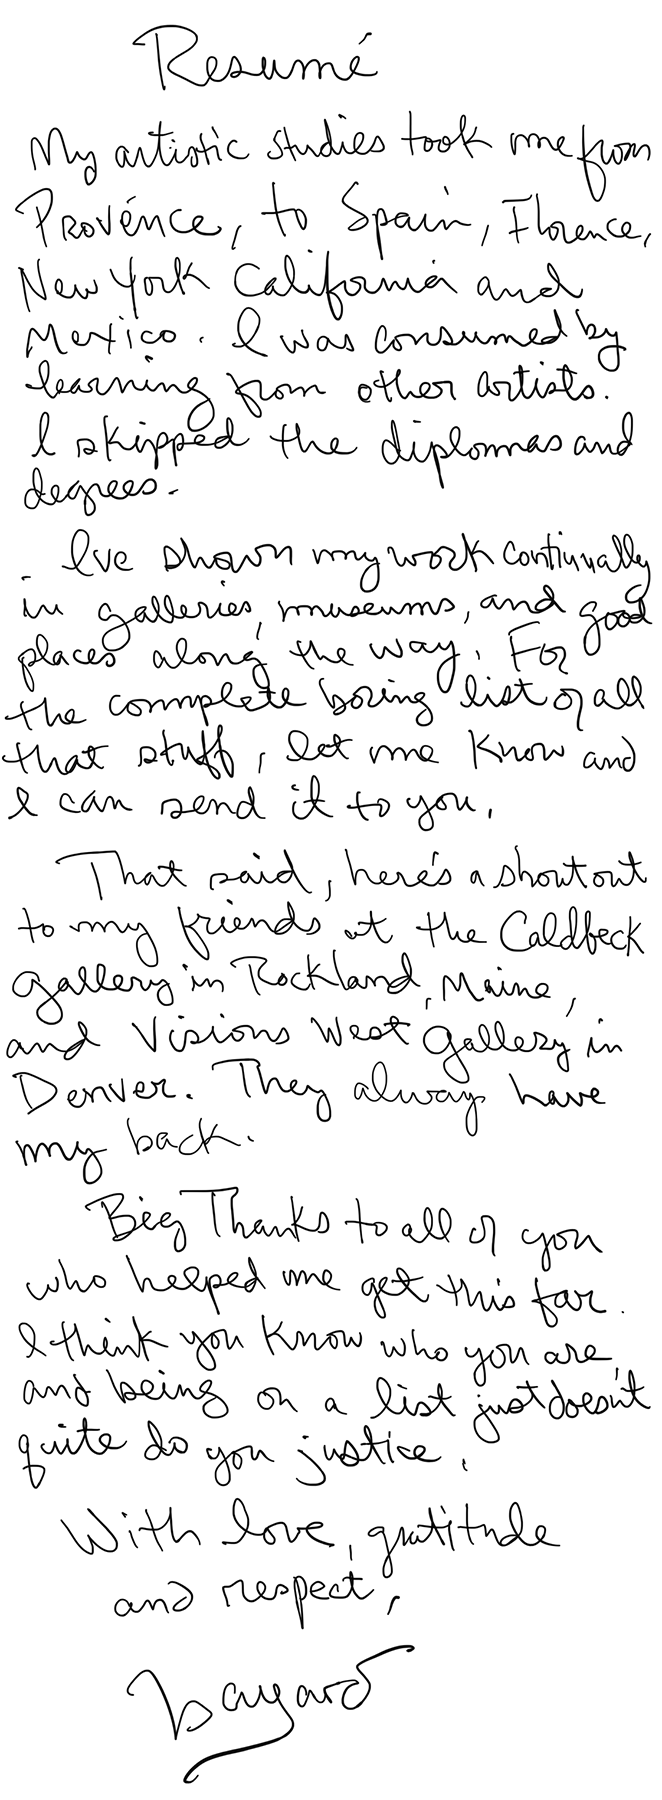 Resumé
My artistic studies took me from
Provénce, to Spain, Florence,
New York California and
Mexico. I was consumed by
learning from other artists.
I skipped the diplomas and
degrees.
I've shown my work continually
in galleries, museums, and good
places along the way. For
the complete boring list of all
that stuff, let me know and
I can send it to you.
That said, here's a shoutout
to my friends at the Caldbeck
Gallery in Rockland, Maine,
and Visions West Gallery in
Denver. They always have
my back.
Big Thanks to all of you
who helped me get this far.
I think you know who you are,
and being on a list just doesn't
quite do you justice.
With love, gratitude
and respect,
bayard